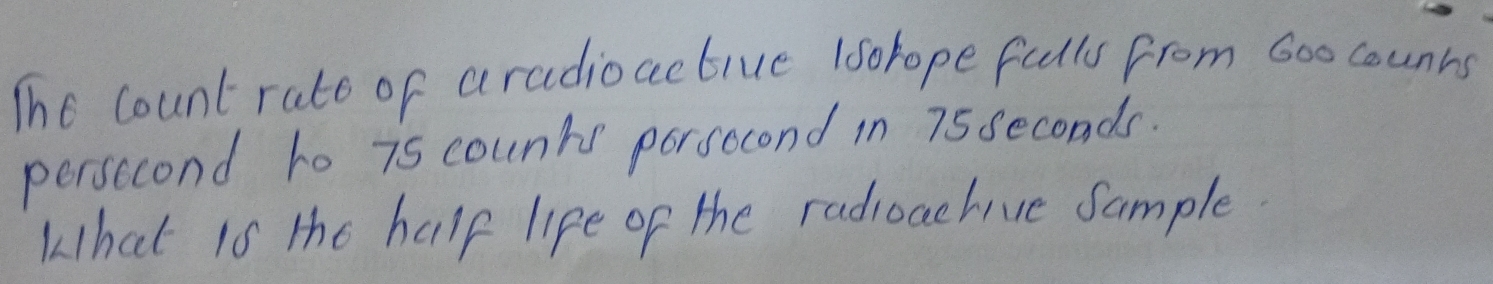 The count rate of a radioactive Isotope falls from 600 counts
persecond to 75 counts persecond in 75 seconds.
What is the half life of the radioactive Sample.